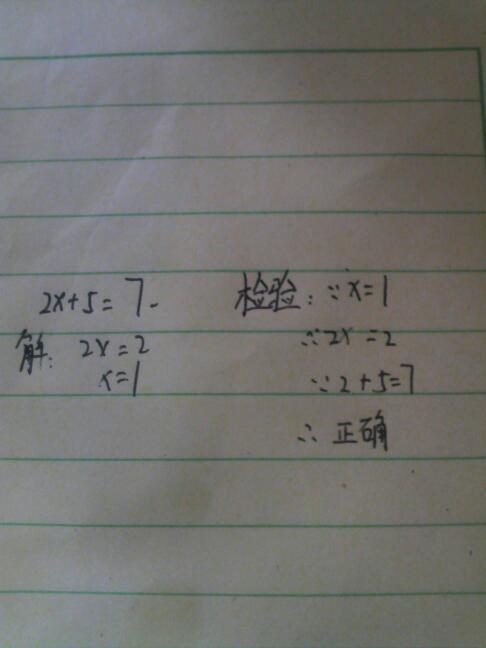 2x+5=7
解: 2x=2
x=1
检验: ∵x=1
∵2x=2
∵2+5=7
∴正确